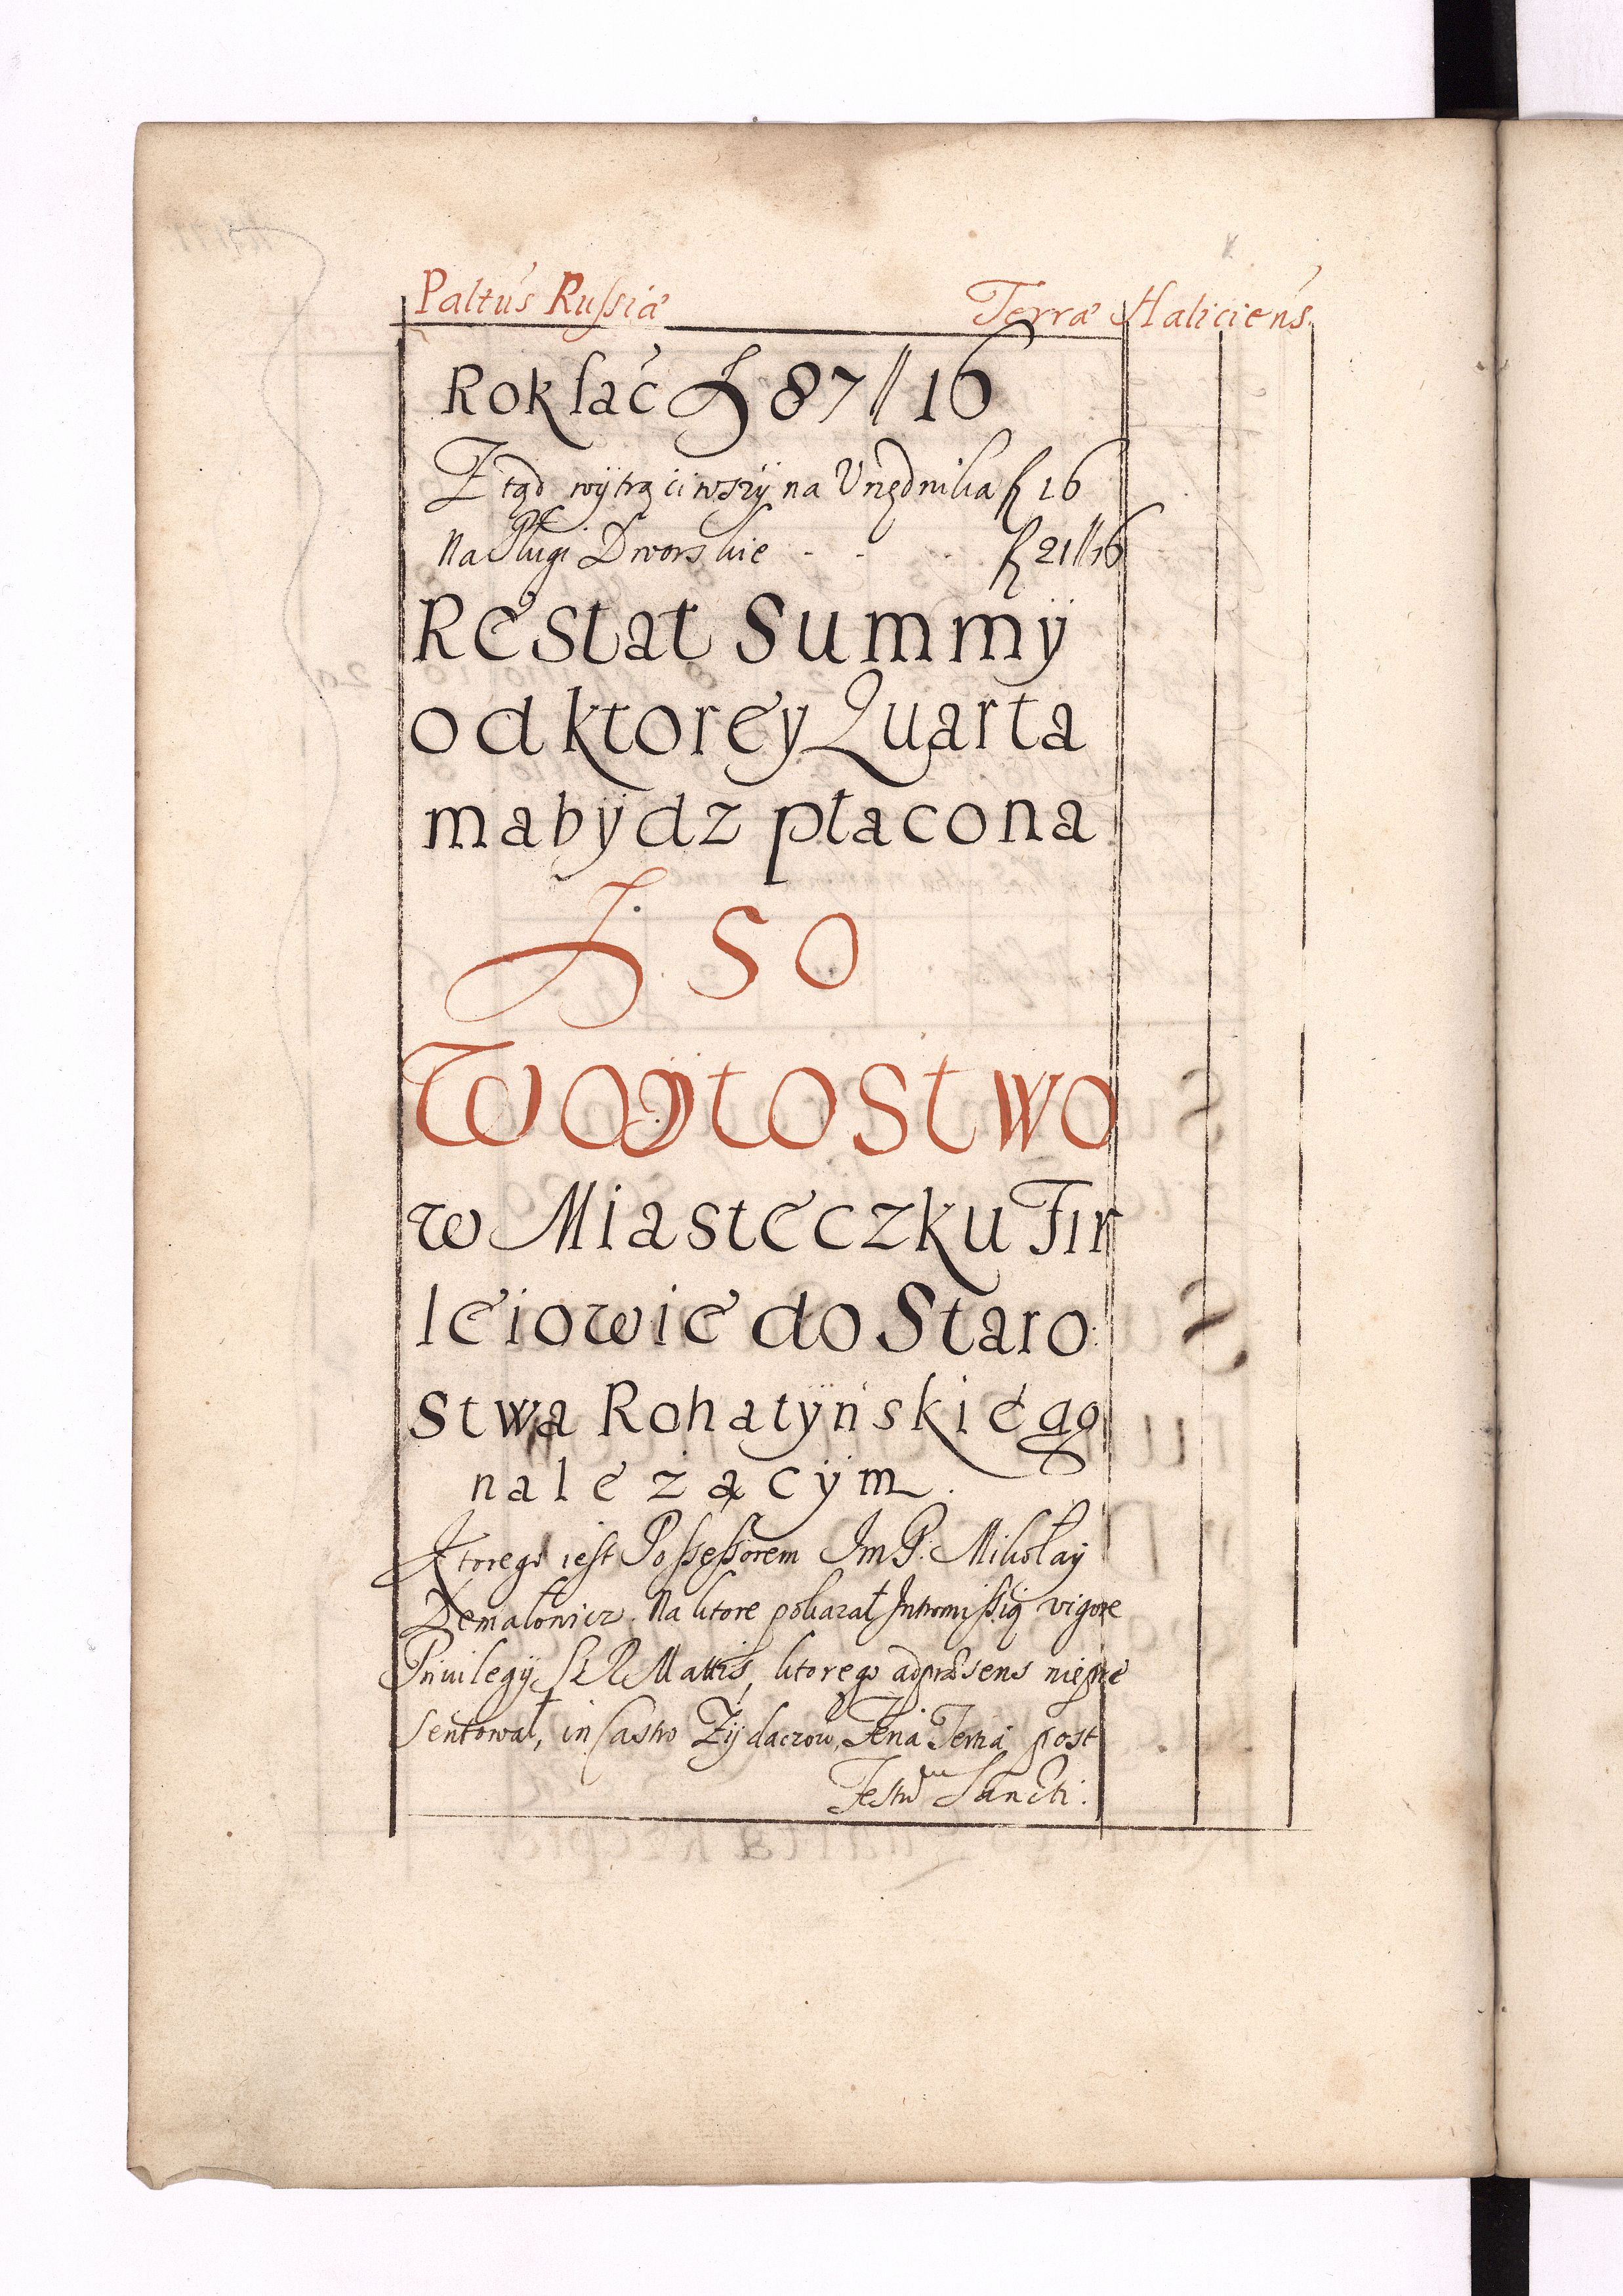 Paltus Russiæ Terræ Haliciens.
Rokłać f 87//16
Ztąd wÿtrąciwszÿ na Urzędnika f 16
Na Pługi Dworskie - - f 21//16
Restat Summÿ
od ktorey Quarta
ma bÿdz płacona
f. 50
Woÿtostwo
w Miasteczku Fir
leiowie do Staro
stwa Rohatÿńskiego
należącÿm.
Ktorego iest Possessorem Im P. Mikołaÿ
Zemałowicz. Na ktore pokazał Intromissią vigore
Priuilegÿ SRMattis, ktorego ad præsens nie præ
sentował, in Castro Zÿdaczow, Feria Tertia post
Festum Sancti.